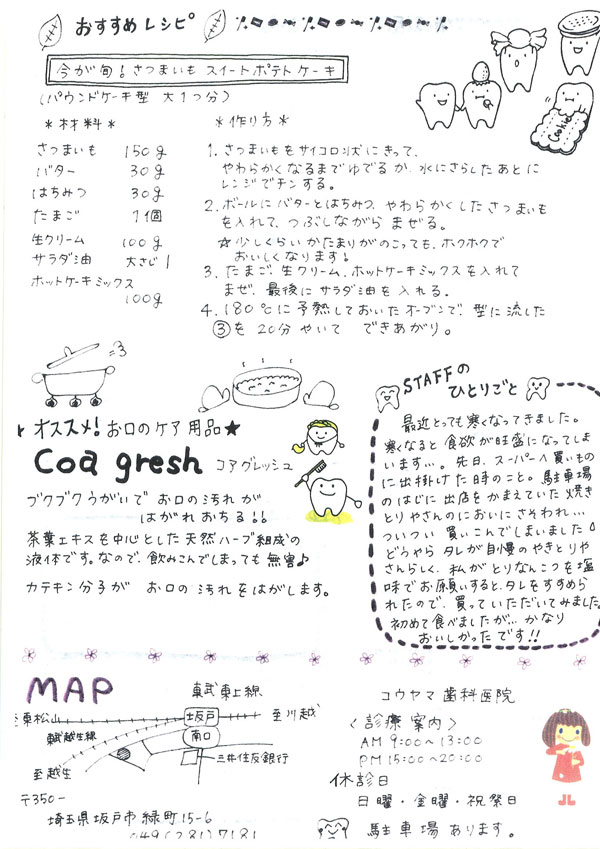 おすすめレシピ
今が旬!さつまいも スイートポテトケーキ
(パウンドケーキ型 大1つ分)
*材料*
さつまいも 150g
バター 30g
はちみつ 30g
たまご 1個
生クリーム 100g
サラダ油 大さじ1
ホットケーキミックス
100g
*作り方*
1. さつまいもをサイコロ状にきって、
やわらかくなるまでゆでるか、水にさらしたあとに
レンジでチンする。
2. ボールにバターとはちみつ、やわらかくしたさつまいも
を入れて、つぶしながらまぜる。
☆少しくらいかたまりがのこっても、ホクホクで
おいしくなります!
3. たまご、生クリーム、ホットケーキミックスを入れて
まぜ、最後にサラダ油を入れる。
4. 180℃に予熱しておいたオーブンで、型に流した
③を20分やいて できあがり。
Cookie
オススメ!お口のケア用品★
Coa gresh コアグレッシュ
ブクブクうがいで お口の汚れが
はがれおちる!!
茶葉エキスを中心とした天然ハーブ組成の
液体です。なので、飲みこんでしまっても無害♪
カテキン分子が お口の汚れをはがします。
STAFFの
ひとりごと
最近とっても寒くなってきました。
寒くなると食欲が旺盛になってしま
います…。先日、スーパーへ買いもの
に出掛けた時のこと。駐車場
のはじに出店をかまえていた焼き
とりやさんのにおいにさそわれ…
ついつい買いこんでしまいました
どうやらタレが自慢のやきとりや
さんらしく、私がとりなんこつを塩
味でお願いすると、タレをすすめら
れたので、買っていただいてみました。
初めて食べましたが…かなり
おいしかったです!!
MAP
東武東上線
至東松山
坂戸
至川越
東武越生線
南口
三井住友銀行
至越生
〒350-
埼玉県坂戸市緑町15-6
049(281)7181
コウヤマ歯科医院
<診療案内>
AM 9:00〜13:00
PM 15:00〜20:00
休診日
日曜・金曜・祝祭日
駐車場あります。